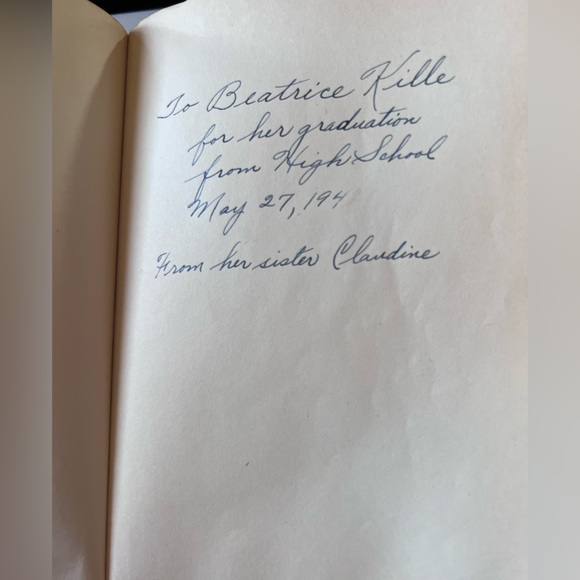 To Beatrice Kille
for her graduation
from High School
May 27, 194
From her sister Claudine